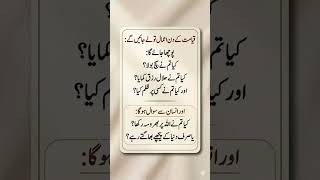 قیامت کے دن اعمال تولے جائیں گے:
پوچھا جائے گا:
کیا تم نے سچ بولا؟
کیا تم نے حلال رزق کمایا؟
اور کیا تم نے کسی پر ظلم کیا؟
اور انسان سے سوال ہوگا:
کیا تم نے اللہ پر بھروسہ رکھا؟
یا صرف دنیا کے پیچھے بھاگتے رہے؟